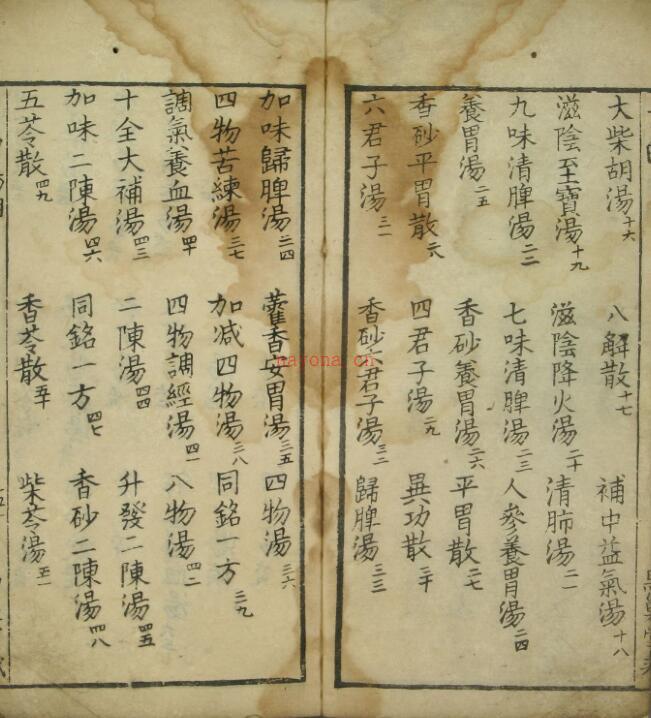 大柴胡湯十六 八解散十七 補中益氣湯十八
滋陰至寶湯十九 滋陰降火湯二十 清肺湯二一
九味清脾湯二二 七味清脾湯二三 人參養胃湯二四
養胃湯二五 香砂養胃湯二六 平胃散二七
香砂平胃散二八 四君子湯二九 異功散三十
六君子湯三一 香砂六君子湯三二 歸脾湯三三
加味歸脾湯三四 藿香安胃湯三五 四物湯三六
四物苦練湯三七 加減四物湯三八 同銘一方三九
調氣養血湯四十 四物調經湯四一 八物湯四二
十全大補湯四三 二陳湯四四 升發二陳湯四五
加味二陳湯四六 同銘一方四七 香砂二陳湯四八
五苓散四九 香苓散五十 柴苓湯五一
nayona.cn